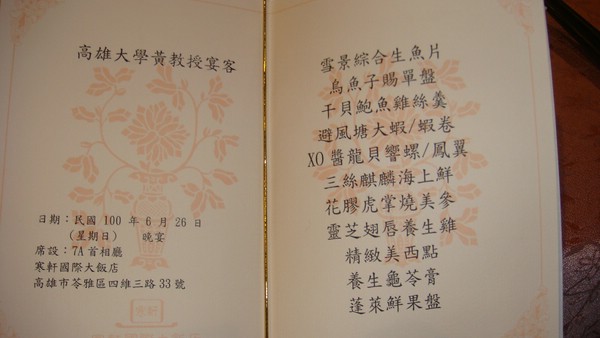 高雄大學黃教授宴客
日期：民國 100 年 6 月 26 日
(星期日) 晚宴
席設：7A首相廳
寒軒國際大飯店
高雄市苓雅區四維三路33號
雪景綜合生魚片
烏魚子賜單盤
干貝鮑魚雞絲羹
避風塘大蝦/蝦卷
XO醬龍貝響螺/鳳翼
三絲麒麟海上鮮
花膠虎掌燒美參
靈芝翅唇養生雞
精緻美西點
養生龜苓膏
蓬萊鮮果盤